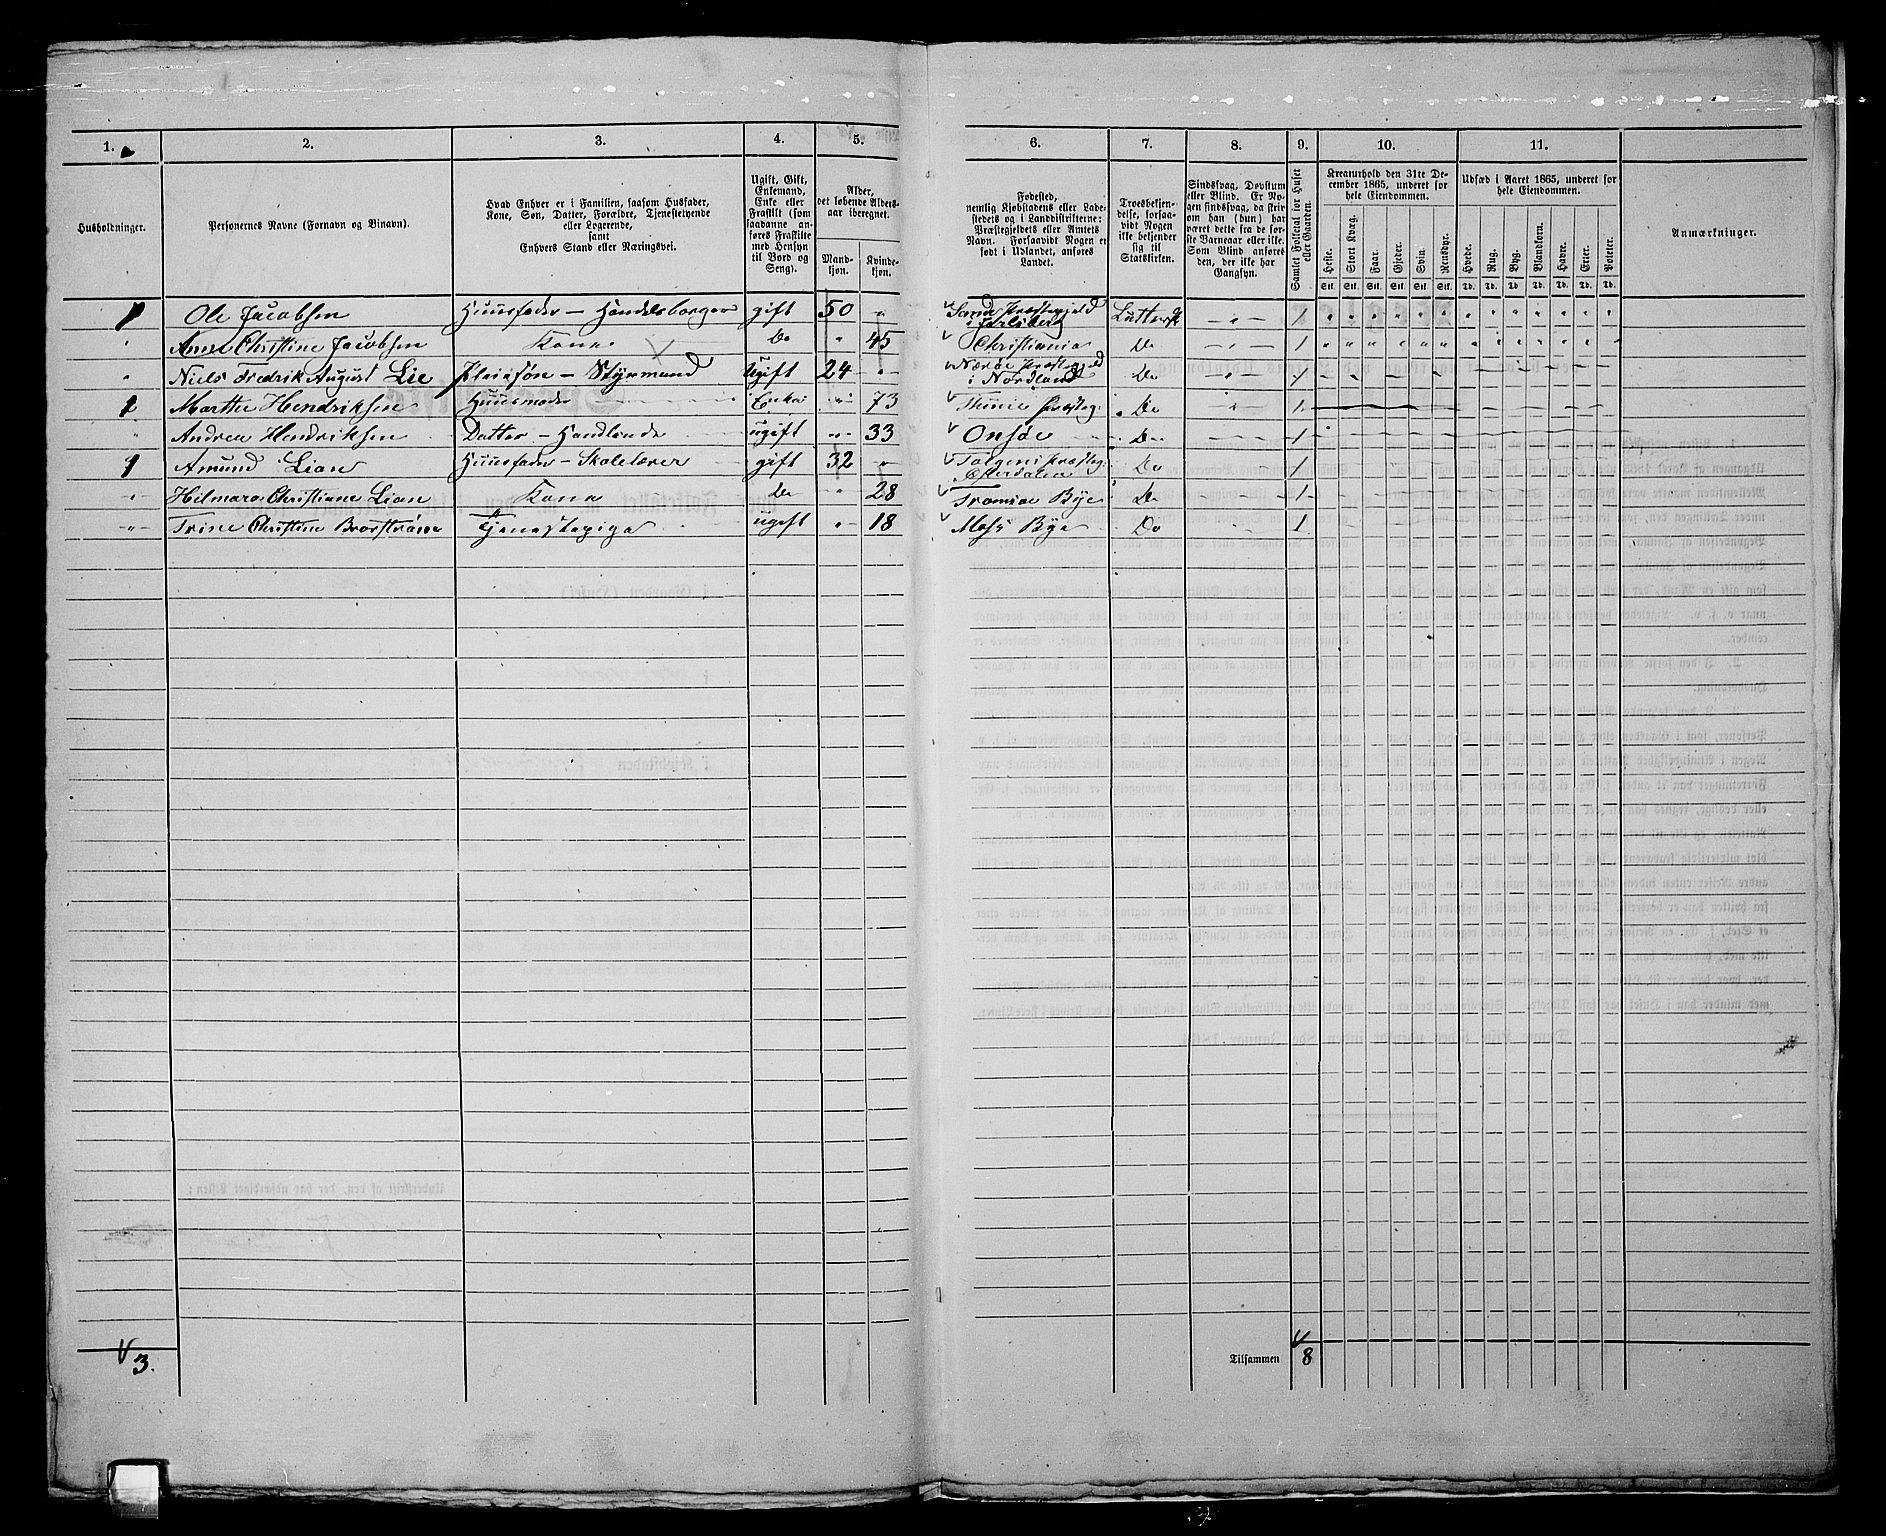 1. 2. 3. 4. 5. 6. 7. 8. 9. 10. 11.
Husholdninger.
Personernes Navne (Fornavn og Binavn).
Hvad Enhver er i Familien, saasom Husfader,
Kone, Søn, Datter, Forældre, Tjenestetyende
eller Logerende,
samt
Enhvers Stand eller Næringsvei.
Ugift, Gift,
Enkemand,
Enke eller
Fraskilt (som
saadanne an-
føres Fraskilte
med Hensyn
til Bord og
Seng).
Alder,
det løbende Alders-
aar iberegnet.
Mand-
kjøn.
Kvinde-
kjøn.
Fødested,
nemlig Kjøbstadens eller Lade-
stedets og i Landdistrikterne:
Præstegjeldets eller Amtets
Navn. Forsaavidt Nogen er
født i Udlandet, anføres
Landet.
Troesbekjen-
delse, forsaa-
vidt Nogen
ikke bekjender
sig til
Statskirken.
Sindssvag, Døvstum
eller Blind. Er No-
gen sindssvag, da skriv
om han (hun) har
været dette fra de før-
ste Barneaar eller ikke.
Som Blind anføres
den, der ikke har
Gangsyn.
Samlet Folketal for Huset
eller Gaarden.
Kreaturhold den 31te De-
cember 1865, underet for
hele Eiendommen.
Heste. Stort Kvæg. Faar. Gjeder. Svin. Rensdyr.
Stk. Stk. Stk. Stk. Stk. Stk.
Udsæd i Aaret 1865, underet for
hele Eiendommen.
Hvede. Rug. Byg. Blandkorn. Havre. Erter. Poteter.
Td. Td. Td. Td. Td. Td. Td.
Anmærkninger.
1 Ole Jacobsen Huusfader – Handelsborger gift 50 " Præstegjeld i Jarlsberg Luthersk 1
" Anne Christine Jacobsen Kone Do " 45 Christiania Do 1
" Niels Fredrik August Lie Pleiesøn – Styrmand Ugift 24 " Nærøe Præstegjeld i Nordland Do 1
1 Marthe Hendriksen Huusmoder Enke " 73 Thunø Præsteg: Do 1
" Andrea Hendriksen Datter – Handlende ugift " 33 Onsøe Do 1
1 Amund Lian Huusfader – Skolelærer gift 32 " Tolgens Præsteg: Østerdalen Do 1
" Hilmara Christiane Lian Kone Do " 28 Tromsøe Bye Do 1
" Trine Christine Brostrøm Tjenestepige ugift " 18 Moss Bye Do 1
3. Tilsammen 8